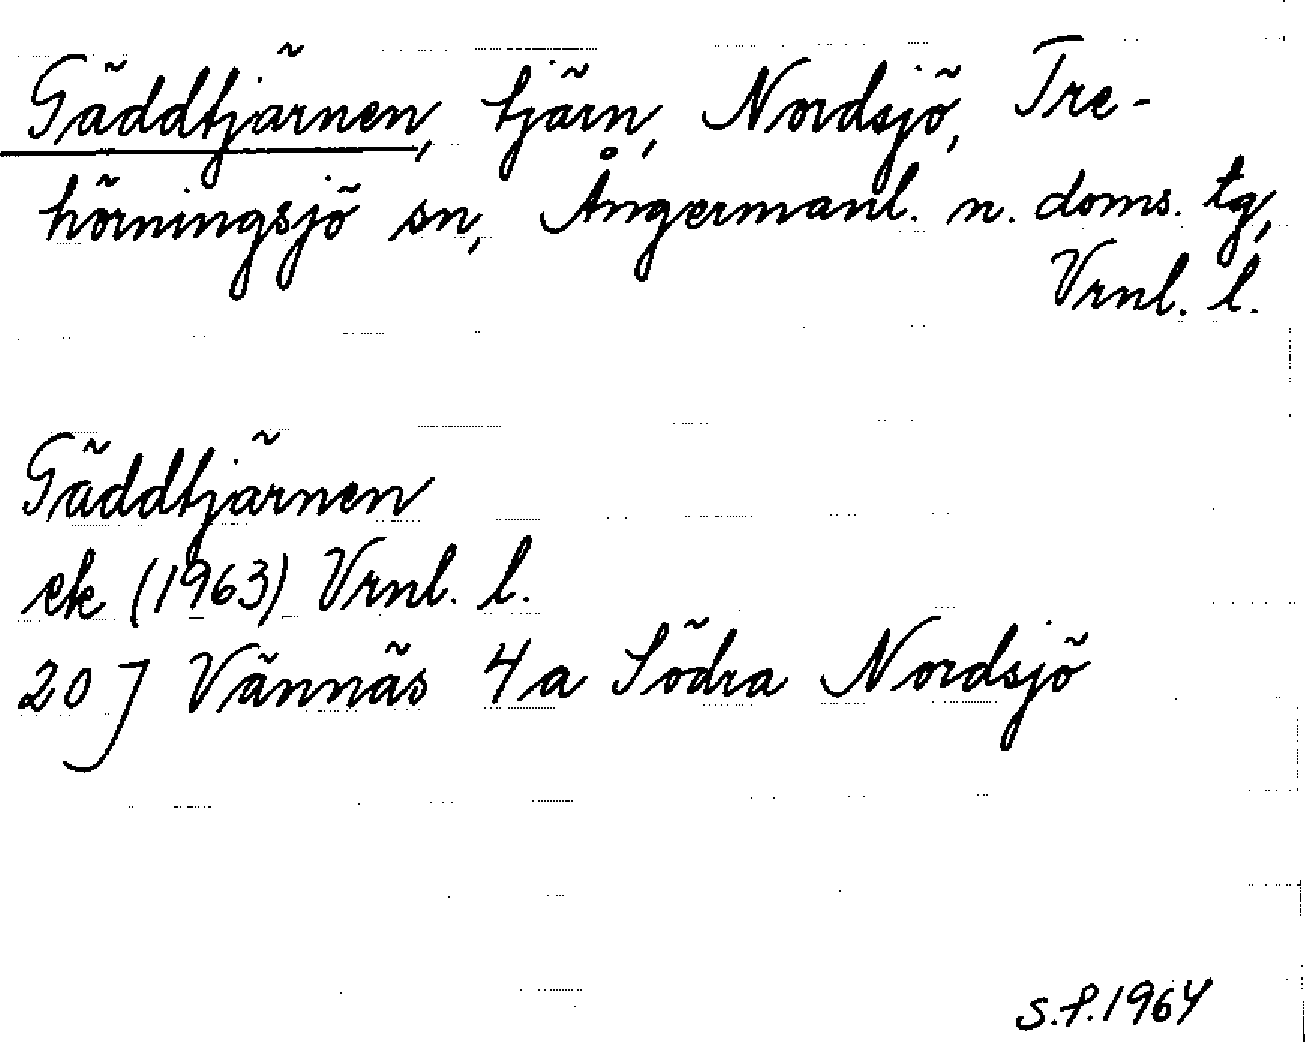 Gäddtjärnen, tjärn, Nordsjö, Tre-
hörningsjö sn, Ångermanl. n. doms. tg,
Vrnl. l.
Gäddtjärnen
ek (1963) Vrnl. l.
20 J Vännäs 4a Södra Nordsjö
S.f. 1964